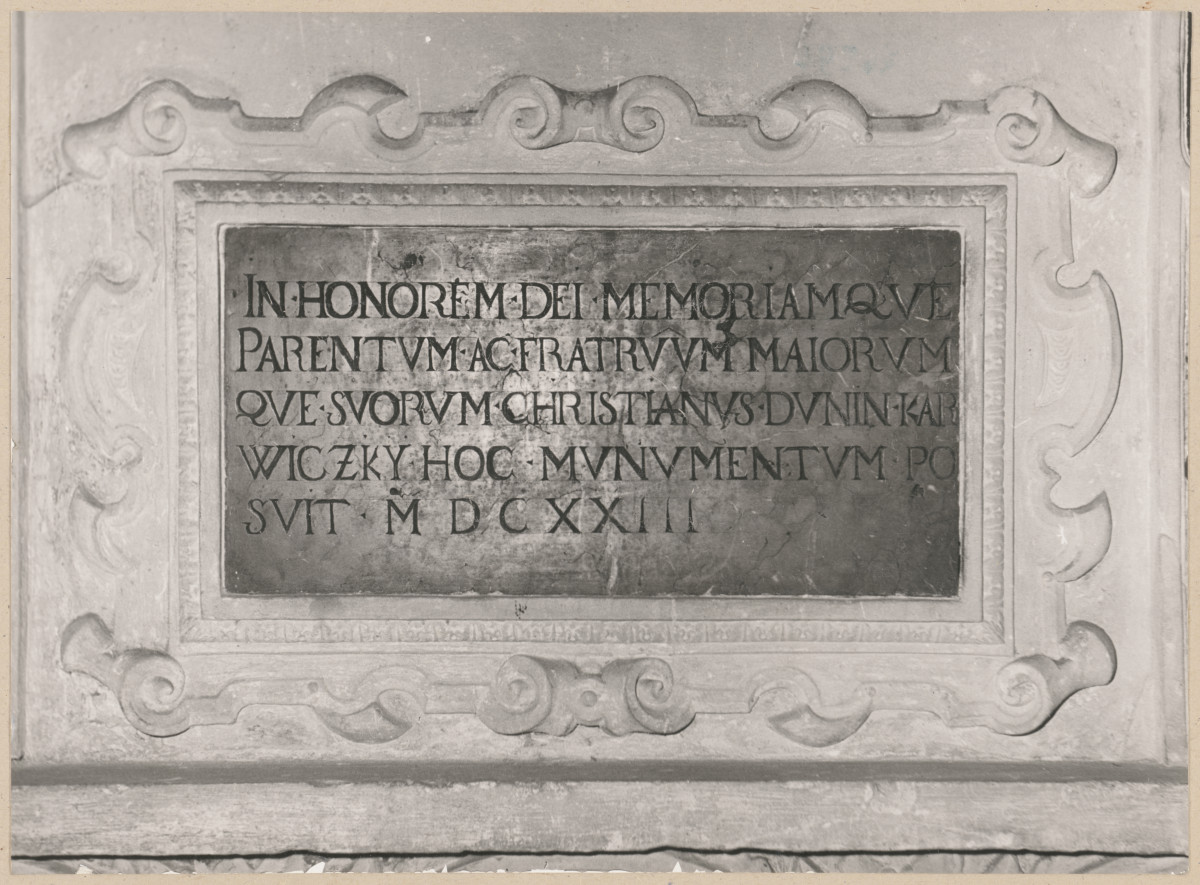 IN·HONOREM·DEI·MEMORIAMQVE
PARENTVM·AC·FRATRVVM MAIORVM
QVE·SVORVM·CHRISTIANVS·DVNIN·KAR
WICZKY·HOC·MVNVMENTVM·PO
SVIT·M DCXXIII